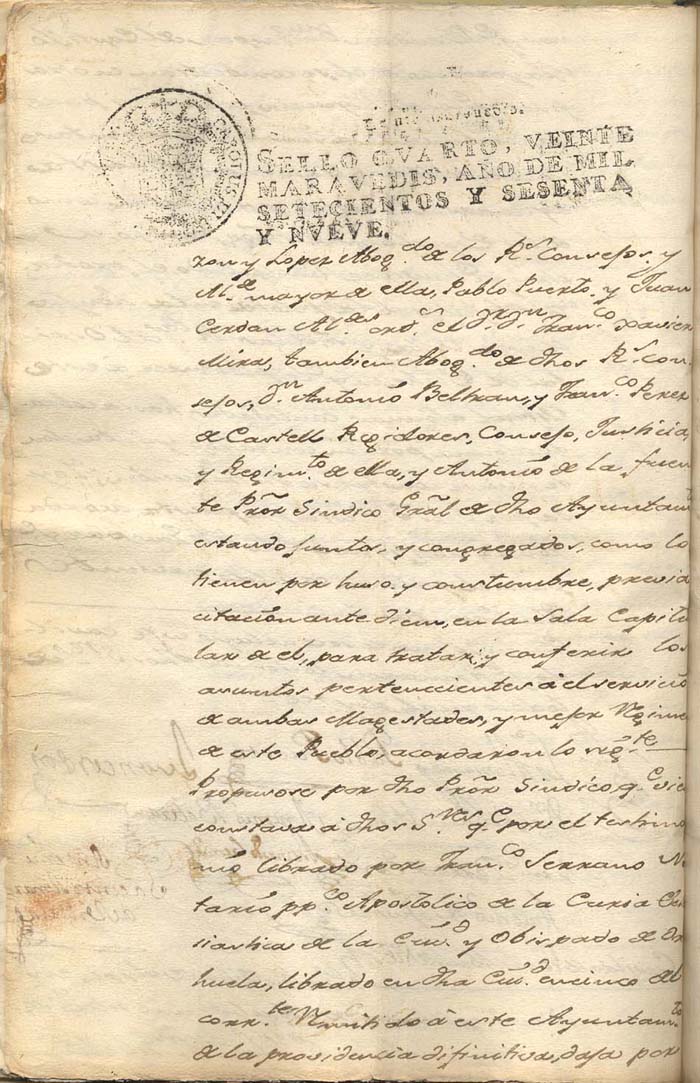 CAROLUS III
Veinte maravedis.
SELLO QVARTO, VEINTE
MARAVEDIS, AÑO DE MIL
SETECIENTOS Y SESENTA
Y NVEVE.
ron y Lopez Abog.do de los R.s Consejos, y
Al.de mayor de ella, Pablo Puerto, y Juan
Cerdan Al.des ord.s el D.r D.n Fran.co Xavier
Miras, tambien Abog.do de dhos R.s Con
sejos, D.n Antonio Beltran, y Fran.co Perez
de Castell Regidores, Consejo, Justicia,
y Regim.to de ella, y Antonio de la Fuen
te Pror Sindico Gral de dho Ayuntam.to
estando juntos, y congregados, como lo
tienen por huso y constumbre, previa
citacion ante diem, en la Sala Capitu
lar de el, para tratar, y conferir los
asuntos pertenecientes à el servicio
de ambas Magestades, y mejor Regimen
de este Pueblo, acordaron lo sig.te
Propusose por dho Pror Sindico, q.e
constava à dhos S.res q.e por el testimo
nio librado por Fran.co Serrano No
tario pp.co Apostolico de la Curia Ecle
siastica de la Ciu.d y Obispado de Ori
huela, librado en dha Ciu.d en cinco del
corr.te Remitido à este Ayuntam.to
de la providencia difinitiva, dada por